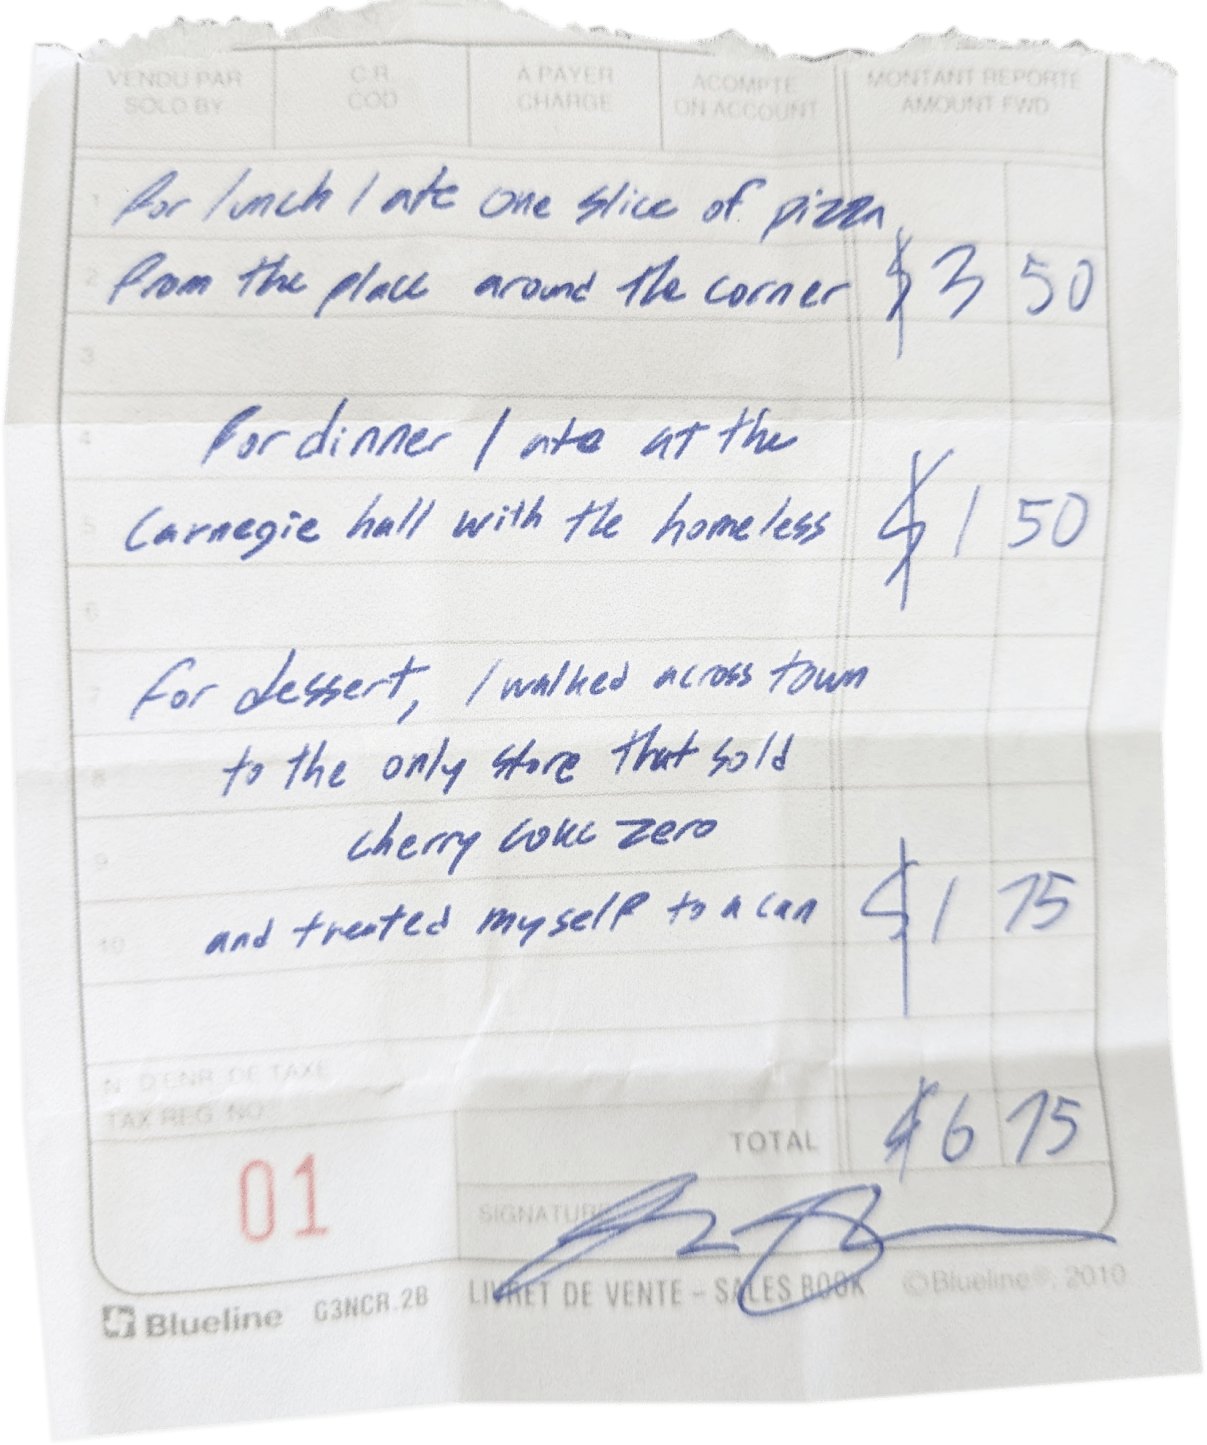 VENDU PAR SOLD BY C.R. COD À PAYER CHARGE ACOMPTE ON ACCOUNT MONTANT REPORTÉ AMOUNT FWD
1 for lunch I ate one slice of pizza
2 from the place around the corner $3 50
3
4 for dinner I ate at the
5 Carnegie hall with the homeless $1 50
6
7 for dessert, I walked across town
8 to the only store that sold
9 cherry coke zero
10 and treated myself to a can $1 75
N° D'ENR. DE TAXE
TAX REG. NO.
TOTAL $6 75
01
SIGNATURE
Blueline G3NCR.2B LIVRET DE VENTE – SALES BOOK ©Blueline®, 2010